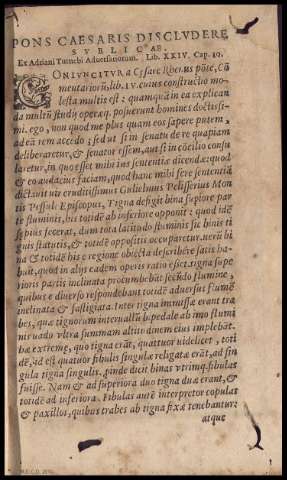 PONS CAESARIS DISCLVDERE,
SVBLICAE.
Ex Adriani Turnebi Aduersariorum. Lib. XXIIII. Cap. 10.
CONIVNCITVR à Cæsare Rhenus pōte, Cō
mentariorū, lib. IV. cuius constructio mo-
lesta multis est: quamquā in ea explican
da multū studij operæq; posuerunt homines doctissi-
mi. ego, non quod me plus quam eos sapere putem,
ad eā rem accedo; sed ut si in senatu de re quapiam
deliberaretur, & senator essem, aut si in cōcilio consu
laretur, in quo esset mihi ius sententiæ dicendæ: quod
& eo audaciùs faciam, quod hanc mihi ferè sententiā
dictauit uir eruditissimus Gulielmus Pelisserius Mon
tis Pessuli Episcopus, Tigna defigit bina supiore par
te fluminis, his totidē ab inferiore opponit: quod idē
sæpius fecerat, dum tota latitudo fluminis sic binis ti
gnis statutis, & totidē oppositis occuparetur. uerū bi
na & totidē his è regione obiecta describere satis ha-
buit, quod in alijs eadem operis ratio esset. tigna supe
rioris partis inclinata procumbebāt secūdo flumine,
quibus è diuerso respondebant totidē aduersus flumē
inclinata & fastigiata. Inter tigna immissæ erant tra
bes, quæ tignorum interuallū bipedale ab imo flumi
nis uado vltra summam altitudinem eius implebāt.
hæ extremæ, quo tigna erāt, quatuor uidelicet, toti
dē, id est quatuor fibulis singulæ religatæ erāt, ad sin
gula tigna singulis. proinde dicit binas vtrimq; fibulas
fuisse. Nam & ad superiora duo tigna duæ erant, &
totidē ad inferiora. Fibulas autē interpretor copulas
& paxillos, quibus trabes ab tigna fixæ tenebantur:
atque